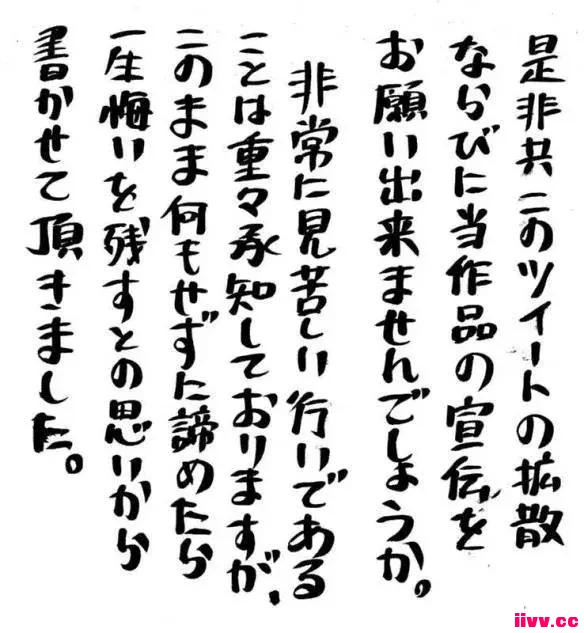 是非共このツイートの拡散
ならびに当作品の宣伝を
お願い出来ませんでしょうか。
非常に見苦しい行いである
ことは重々承知しておりますが、
このまま何もせずに諦めたら
一生悔いを残すとの思いから
書かせて頂きました。
iivv.cc